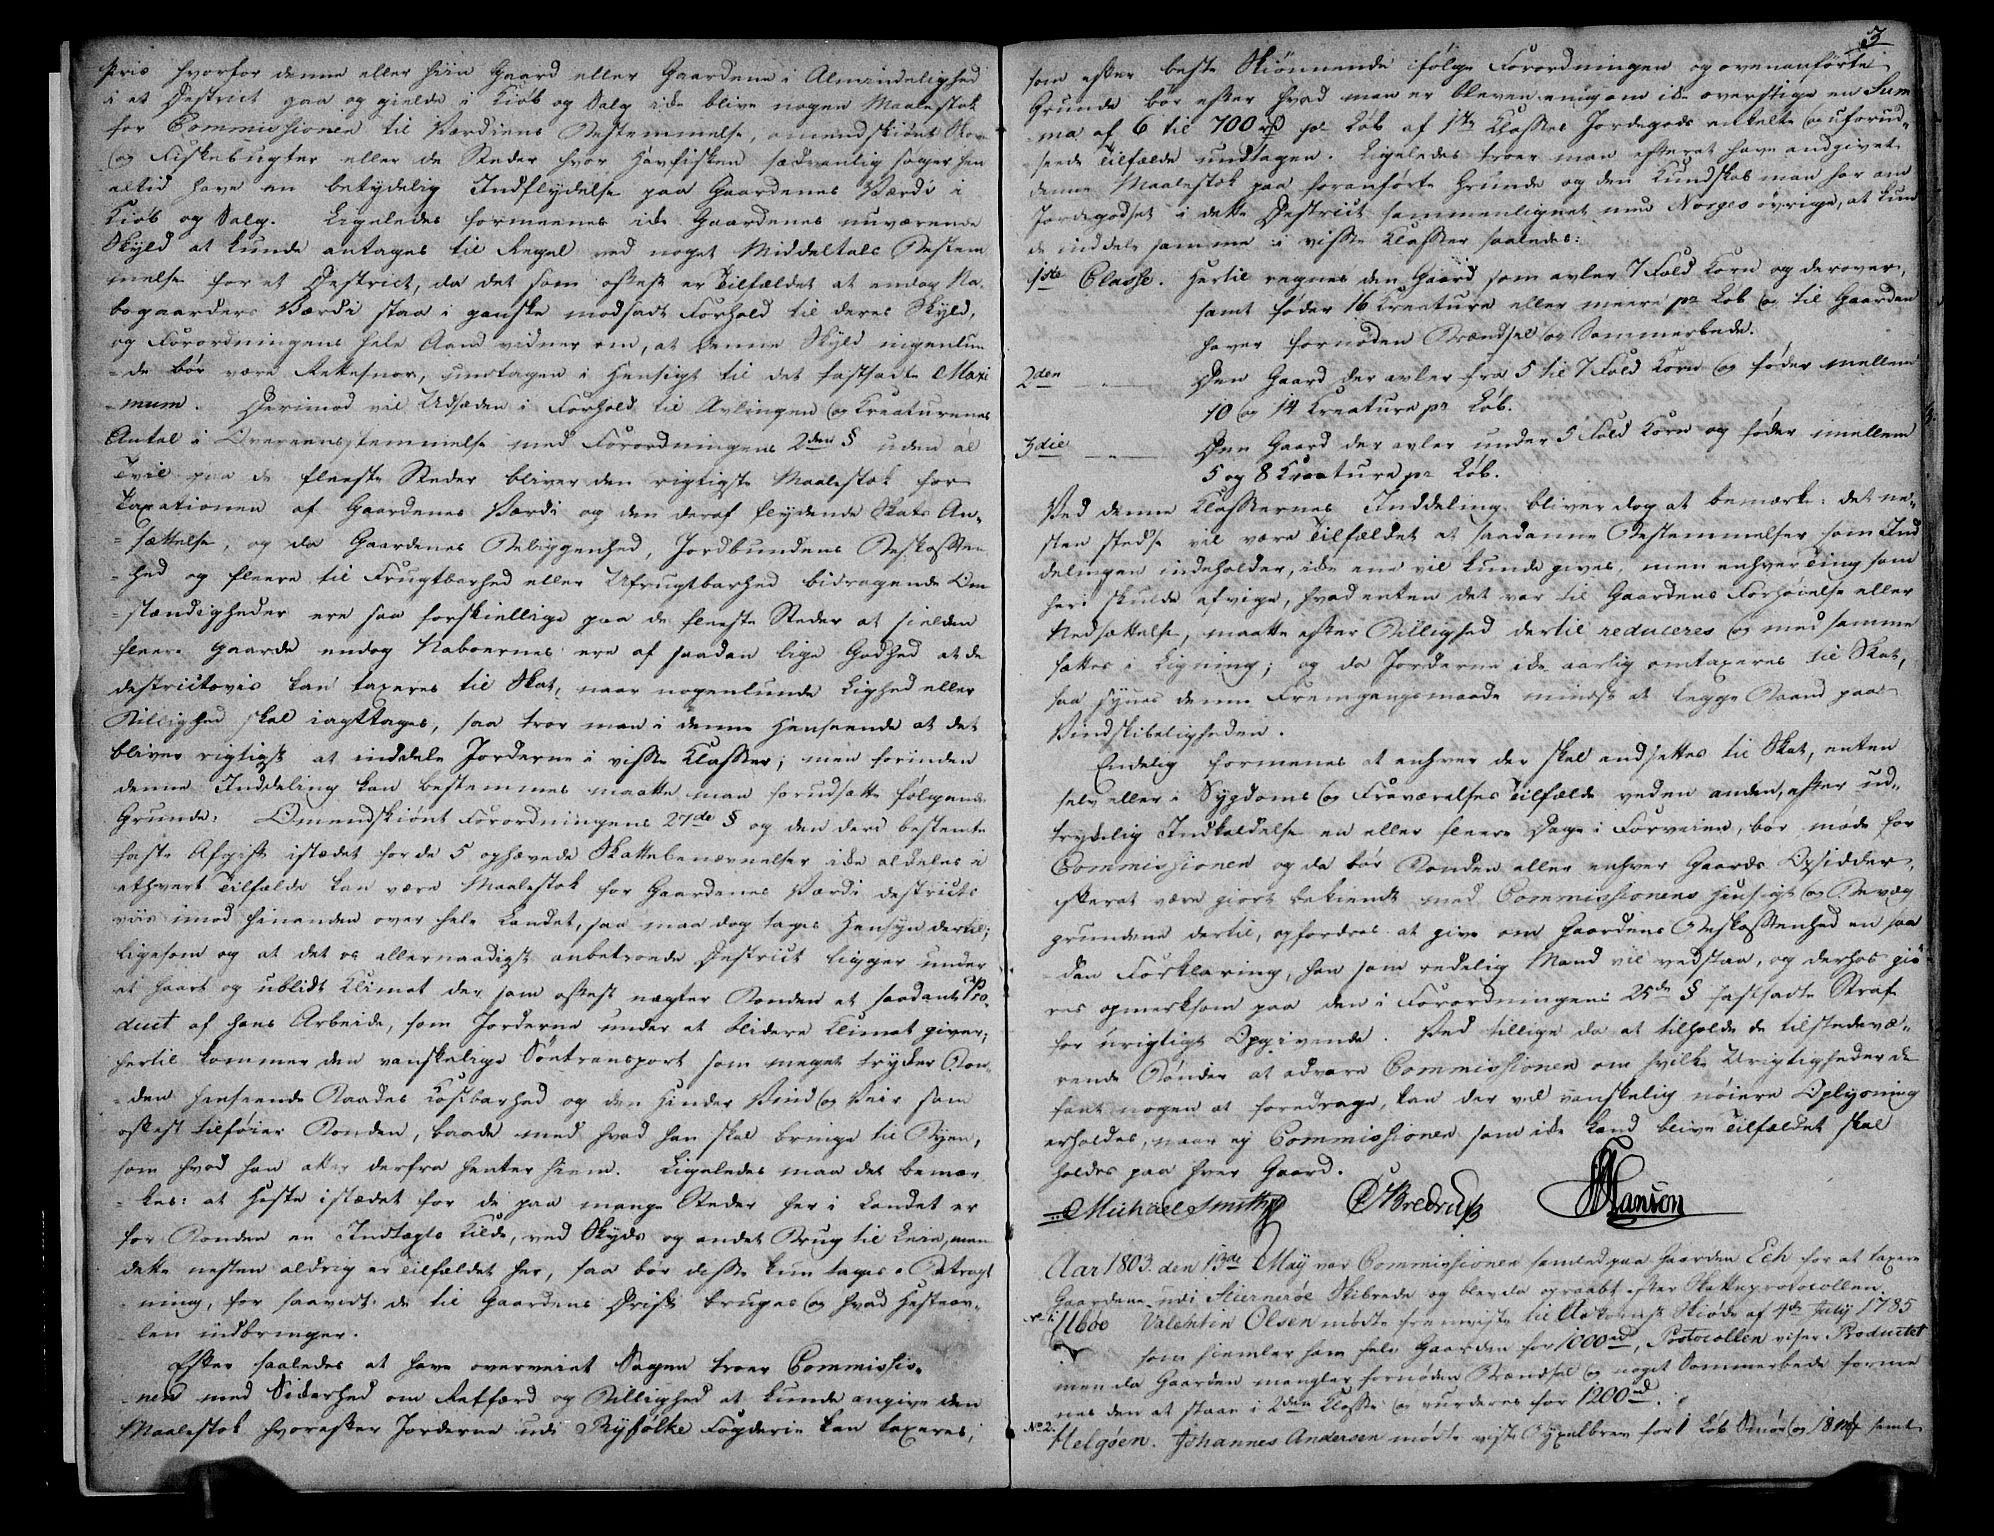 Priis hvorfor denne eller hiin Gaard eller Gaardene i Almindelighed
i et District gaa og gielde i Kiøb og Salg ikke blive nogen Maalestok
for Commissionen til Værdiens Bestemmelse, omendskiønt Skov
og Fiskebugter eller de Steder hvor Havfisken sædvanlig søger hen
altid have en betydelig Indflydelse paa Gaardenes Værdi i
Kiøb og Salg. Ligeledes formeenes ikke Gaardenes nuværende
Skyld at kunde antages til Regel ved noget Middeltals Bestem
melse for et District, da det som oftest er Tilfældet at endog Na-
bogaarders Værdi staa i ganske modsadt Forhold til deres Skyld,
og Forordningens hele Aand vidner om, at denne Skyld ingenlun
-de bør være Rettesnor, undtagen i Hensigt til det fastsatte Maxi
-mum. Derimod vil Udsæden i Forhold til Avlingen og Kreaturenes
Antal i Overeensstemmelse med Forordningens 2den § uden al
Tvil paa de fleeste Steder bliver den rigtigste Maalestok for
Taxationen af Gaardenes Værdi og den deraf flydende Skats An-
-sættelse, og da Gaardenes Beliggenhed, Jordbundens Beskaffen
-hed og fleere til Frugtbarhed eller Ufrugtbarhed bidragende Om
-stændigheder ere saa forskiellige paa de fleeste Steder at sielden
fleere Gaarde endog Naboernes ere af saadan lige Godhed at de
districtsviis kan taxeres til Skat, naar nogenlunde Lighed eller
Billighed skal iagttages, saa troer man i denne Henseende at det
bliver rigtigst at inddele Jorderne i visse Klasser; men forinden
denne Inddeling kan bestemmes maatte man forudsætte følgende
Grunde: Omendskiønt Forordningens 27de § og den deri bestemte
faste Afgift istædet for de 5 ophævede Skattebenævnelser ikke aldeles i
ethvert Tilfælde kan være Maalestok for Gaardenes Værdi districts
viis imod hinanden over hele Landet, saa maa dog tages Hensyn dertil;
ligesom og at det os allernaadigst anbetroede District ligger under
et haart og ublidt Klimat der som oftest nægter Bonden et saadant Pro-
duct af hans Arbeide, som Jorderne under et blidere Klimat giver;
hertil kommer den vanskelige Søetransport som meget trykker Bon-
-den henseende Baades Kostbarhed og den Hinder Vind og Veir som
oftest tilføier Bonden, baade med hvad han skal bringe til Byen,
som hvad han atter derfra henter hiem. Ligeledes maa det bemær
-kes: at Heste istædet for de paa mange Steder her i Landet er
for Bonden en Indtægts Kilde, ved Skyds og andet Brug til Leie, men
dette nesten aldrig er Tilfældet her, saa bør disse kun tages i Betragt
-ning, for saavidt de til Gaardens Drift bruges og hvad Hesteav-
-len indbringer.
Efter saaledes at have overveiet Sagen troer Commissio-
-nen med Sikkerhed om Retfærd og Billighed at kunde angive den
Maalestok hvorefter Jorderne udi Ryfølke Fogderie kan taxeres,
3
som efter beste Skiønnende ifølge Forordningen og ovenanførte
Grunde bør efter hvad man er bleven enig om ikke overstige en Sum
ma af 6 til 700 rd pr Løb af 1ste Klasses Jordegods enkelte og uforud-
seede Tilfælde undtagen. Ligeledes troer man efterat have andgivet
denne Maalestok paa foranførte Grunde og den Kundskab man har om
Jordegodset i dette District sammenlignet med Norges øvrige, at kun
de inddele samme i visse Klasser saaledes:
1ste Classe. Hertil regnes den Gaard som avler 7 Fold Korn og derover,
samt føder 16 Kreature eller meere pr Løb og til Gaarden
haver fornøden Brændsel og Sommerbede.
2den — Den Gaard der avler fra 5 til 7 Fold Korn og føder mellem
10 og 14 Kreature pr Løb.
3die — Den Gaard der avler under 5 Fold Korn og føder imellem
5 og 8 Kreature pr Løb.
Ved denne Klassernes Inddeling bliver dog at bemærke: det ne-
sten stedse vil være Tilfældet at saadanne Bestemmelser som Ind
delingen indeholder, ikke ene vil kunde gives, men enhver Ting som
heri skulde afvige, hvad enten det var til Gaardens Forhøielse eller
Nedsættelse, maatte efter Billighed dertil reduceres og med samme
sættes i Ligning; og da Jorderne ikke aarlig omtaxeres til Skat,
saa synes denne Fremgangsmaade mindst at legge Baand paa
Vindskibeligheden.
Endelig formenes at enhver der skal andsettes til Skat, enten
selv eller i Sygdoms og Fraværelses Tilfælde ved en anden, efter ud-
trykkelig Indkaldelse en eller fleere Dage i Forveien, bør møde for
Commissionen og da bør Bonden eller enhver Gaards Opsidder,
efterat være giort bekiendt med Commissionens Hensigt og Bevæg
grundene dertil, opfordres at give om Gaardens Beskaffenhed en saa
dan Forklaring, han som redelig Mand vil vedstaa, og derhos giø
res opmerksom paa den i Forordningens 25de § fastsadte Straf
for urigtigt Opgivende. Ved tillige da at tilholde de tilstedevæ-
rende Bønder at advare Commissionen om hvilke Urigtigheder de
fant nogen at foredrage, kan der vel vanskelig nøiere Oplysning
erholdes, naar ey Commissionen som ikke kand blive Tilfældet skal
holdes paa hver Gaard.
Michael Smith
Bredrup
Hanson
Aar 1803. den 13de May var Commissionen samled paa Gaarden Eeh for at taxere
Gaardene udi Stiernerøe Skibrede og blev da opraabt efter Skatteprotocollen.
No 1. Valentin Olsen mødte fremviste til Auctionsk Skiøde af 4de July 1785
som hiemler ham hele Gaarden for 1000 rd, Protocollen viser Productet
men da Gaarden mangler fornøden Brændsel og noget Sommerbede forme
nes den at staae i 2den Klasse og vurderes for 1200 rd.
No 2. Helgøen. Johannes Andersen mødte viste Byxelbrev for 1 Løb Smør og 18 mk samt